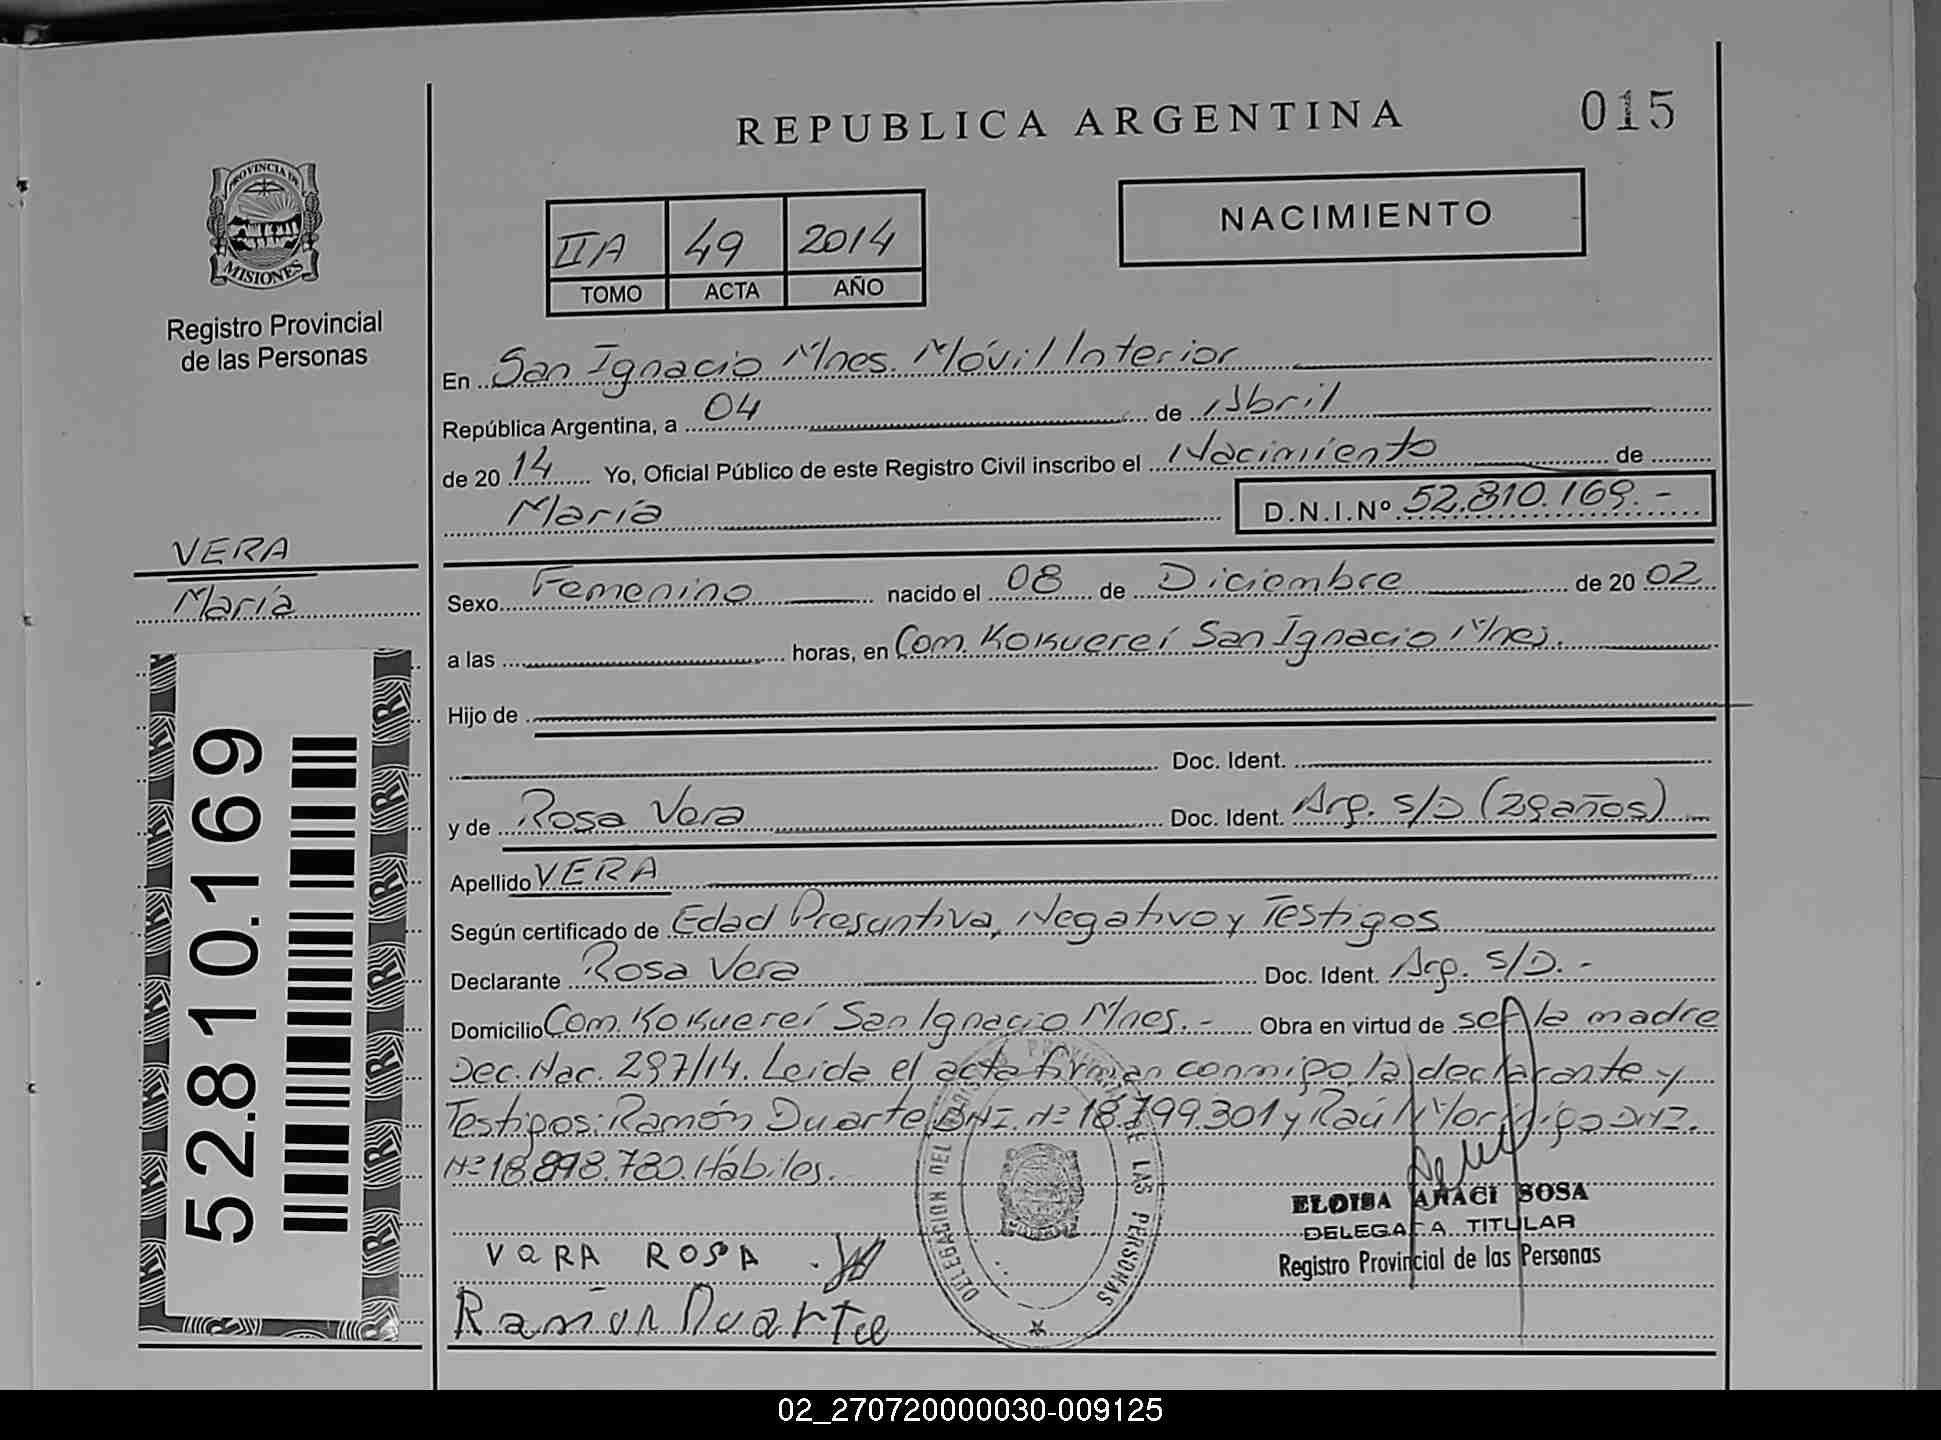 REPUBLICA ARGENTINA
015
PROVINCIA DE
MISIONES
Registro Provincial
de las Personas
IIA 49 2014
TOMO ACTA AÑO
NACIMIENTO
En San Ignacio Mnes. Móvil Interior
República Argentina, a 04 de Abril
de 20 14 Yo, Oficial Público de este Registro Civil inscribo el Nacimiento de
María D.N.I.Nº 52.810.169.-
VERA
María
Sexo Femenino nacido el 08 de Diciembre de 20 02
a las horas, en Com. Kokuereí San Ignacio Mnes.
Hijo de
Doc. Ident.
y de Rosa Vera Doc. Ident. Arg. S/D (29 años)
Apellido VERA
Según certificado de Edad Presuntiva, Negativo y Testigos
Declarante Rosa Vera Doc. Ident. Arg. S/D.-
Domicilio Com. Kokuereí San Ignacio Mnes.- Obra en virtud de ser la madre
Dec. Nac. 297/14. Leida el acta firman conmigo la declarante y
Testigos: Ramón Duarte DNI. Nº 18.799.301 y Raúl Morínigo DNI.
Nº 18.898.780. Hábiles.
52.810.169
DELEGACION DEL REGISTRO PROVINCIAL DE LAS PERSONAS
VERA ROSA
Ramón Duarte
ELOISA ANACI SOSA
DELEGADA TITULAR
Registro Provincial de las Personas
02_270720000030-009125